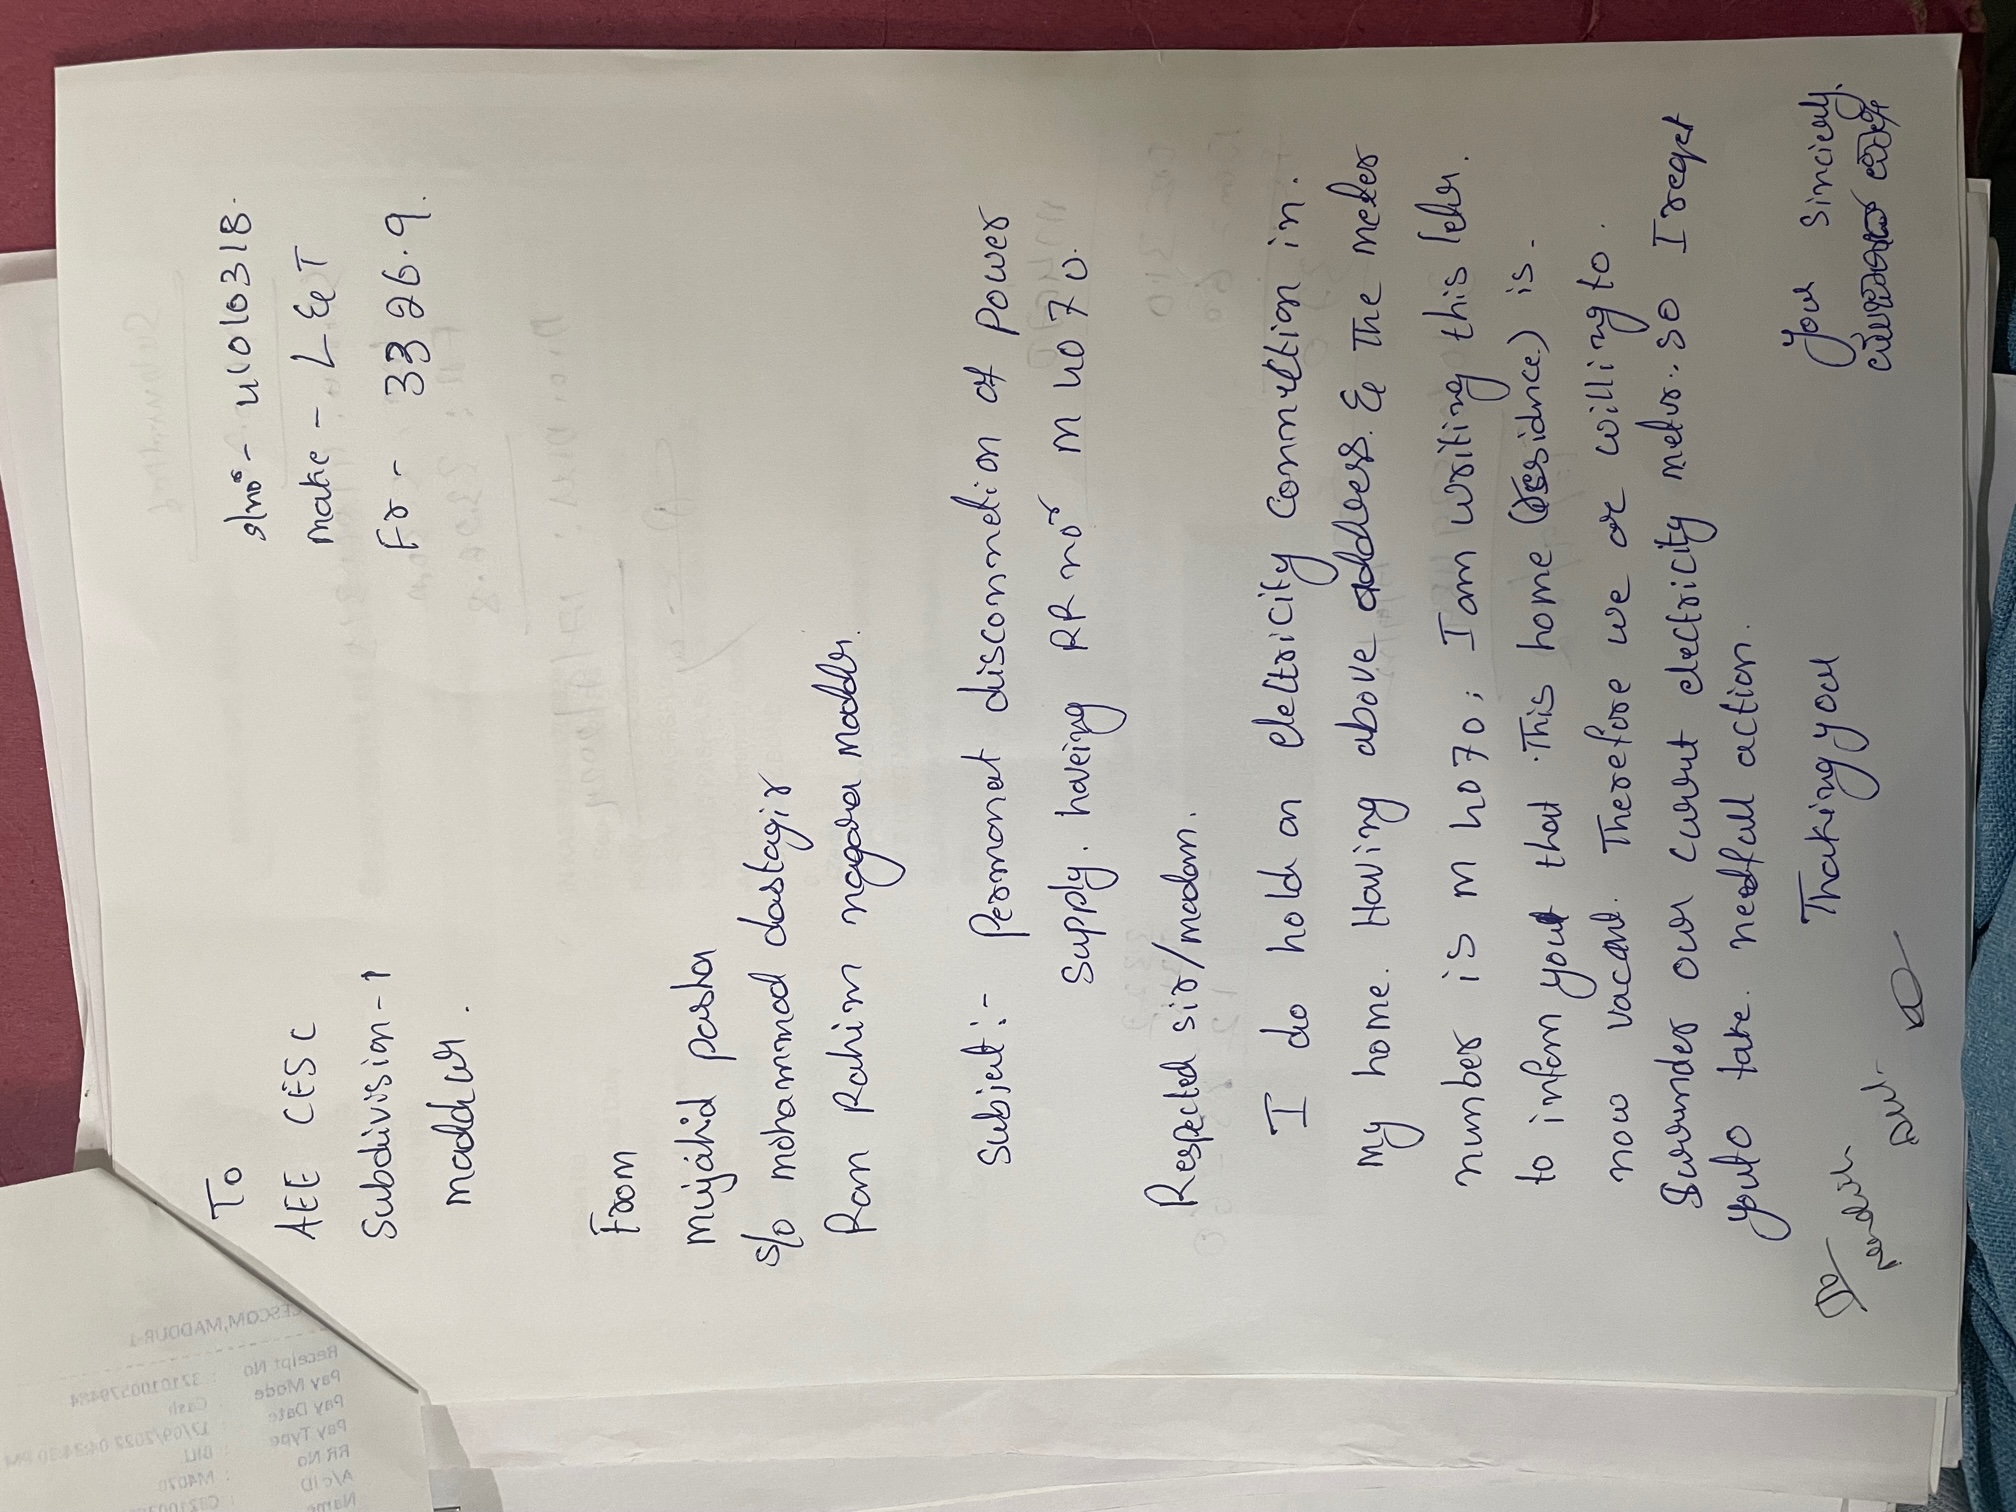 To
AEE CESC
Subdivision-1
maddur.
slno - 4010318.
make - L & T
Fr - 3326.9.
From
Mujahid pasha
s/o mohammad dastagir
Ram Rahim nagara maddur.
Subject:- Permanat disconnection of Power
Supply. haveing RR no M4070.
Respected sir/madam.
I do hold an eleltricity connection in.
My home. Having above address. & The meter
number is M4070; I am writing this leter.
to inform you that This home (residnce) is.
now vacant. Therefore we are willing to.
Surunder our curunt electricity metur. so I reqest
youto take needfull action.
Thaking you
Your Sinciealy.
CESCOM, MADDUR-1
Receipt No : 3210100579424
Pay Mode : Cash
Pay Date : 12/09/2022 04:24:30 PM
Pay Type : Bill
RR No : M4070
A/c ID
Name